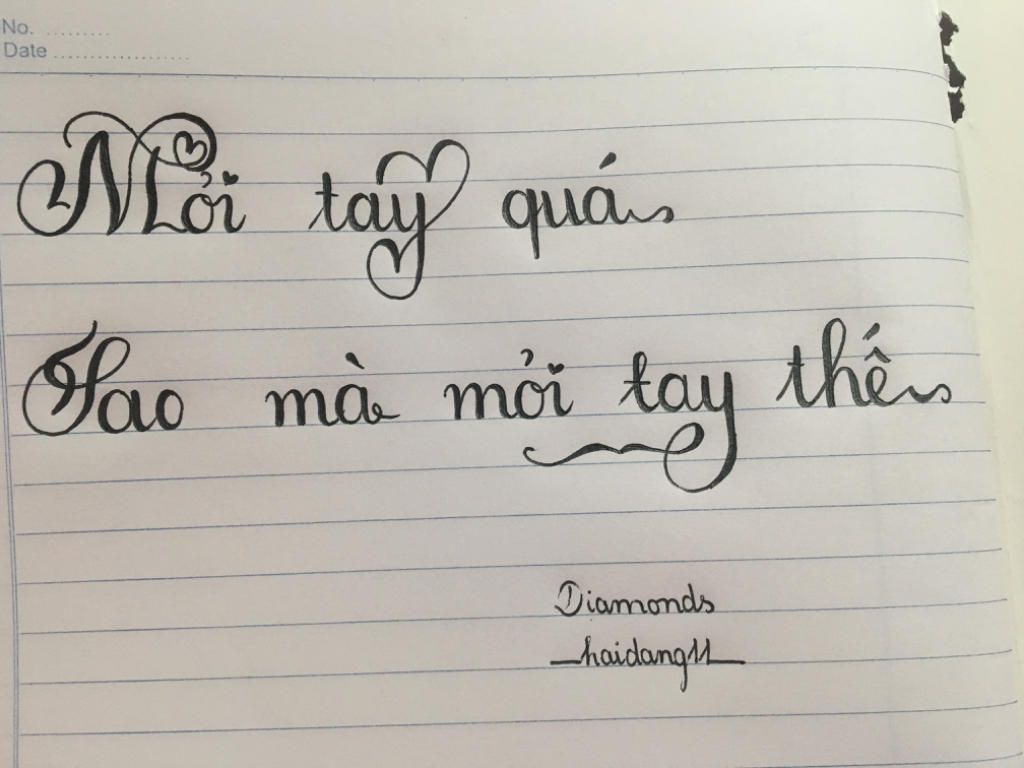 No. .........
Date ...................
Mỏi tay quá
Sao mà mỏi tay thế
Diamonds
haidang11